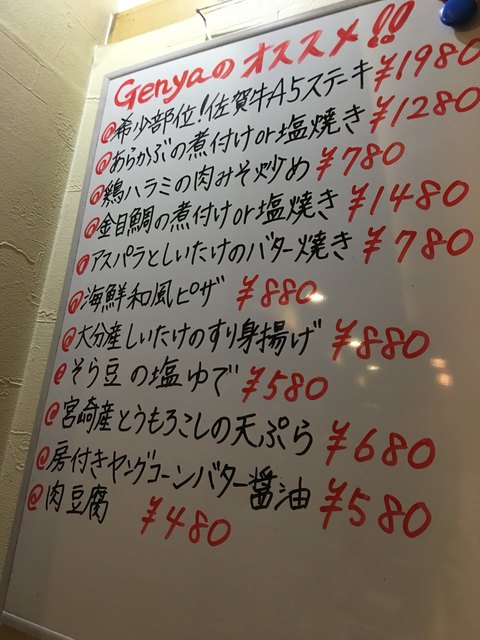 Genyaのオススメ!!
@希少部位!佐賀牛A5ステーキ ¥1980
@あらかぶの煮付けor塩焼き ¥1280
@鶏ハラミの肉みそ炒め ¥780
@金目鯛の煮付けor塩焼き ¥1480
@アスパラとしいたけのバター焼き ¥780
@海鮮和風ピザ ¥880
@大分産しいたけのすり身揚げ ¥880
@そら豆の塩ゆで ¥580
@宮崎産とうもろこしの天ぷら ¥680
@房付きヤングコーンバター醤油 ¥580
@肉豆腐 ¥480